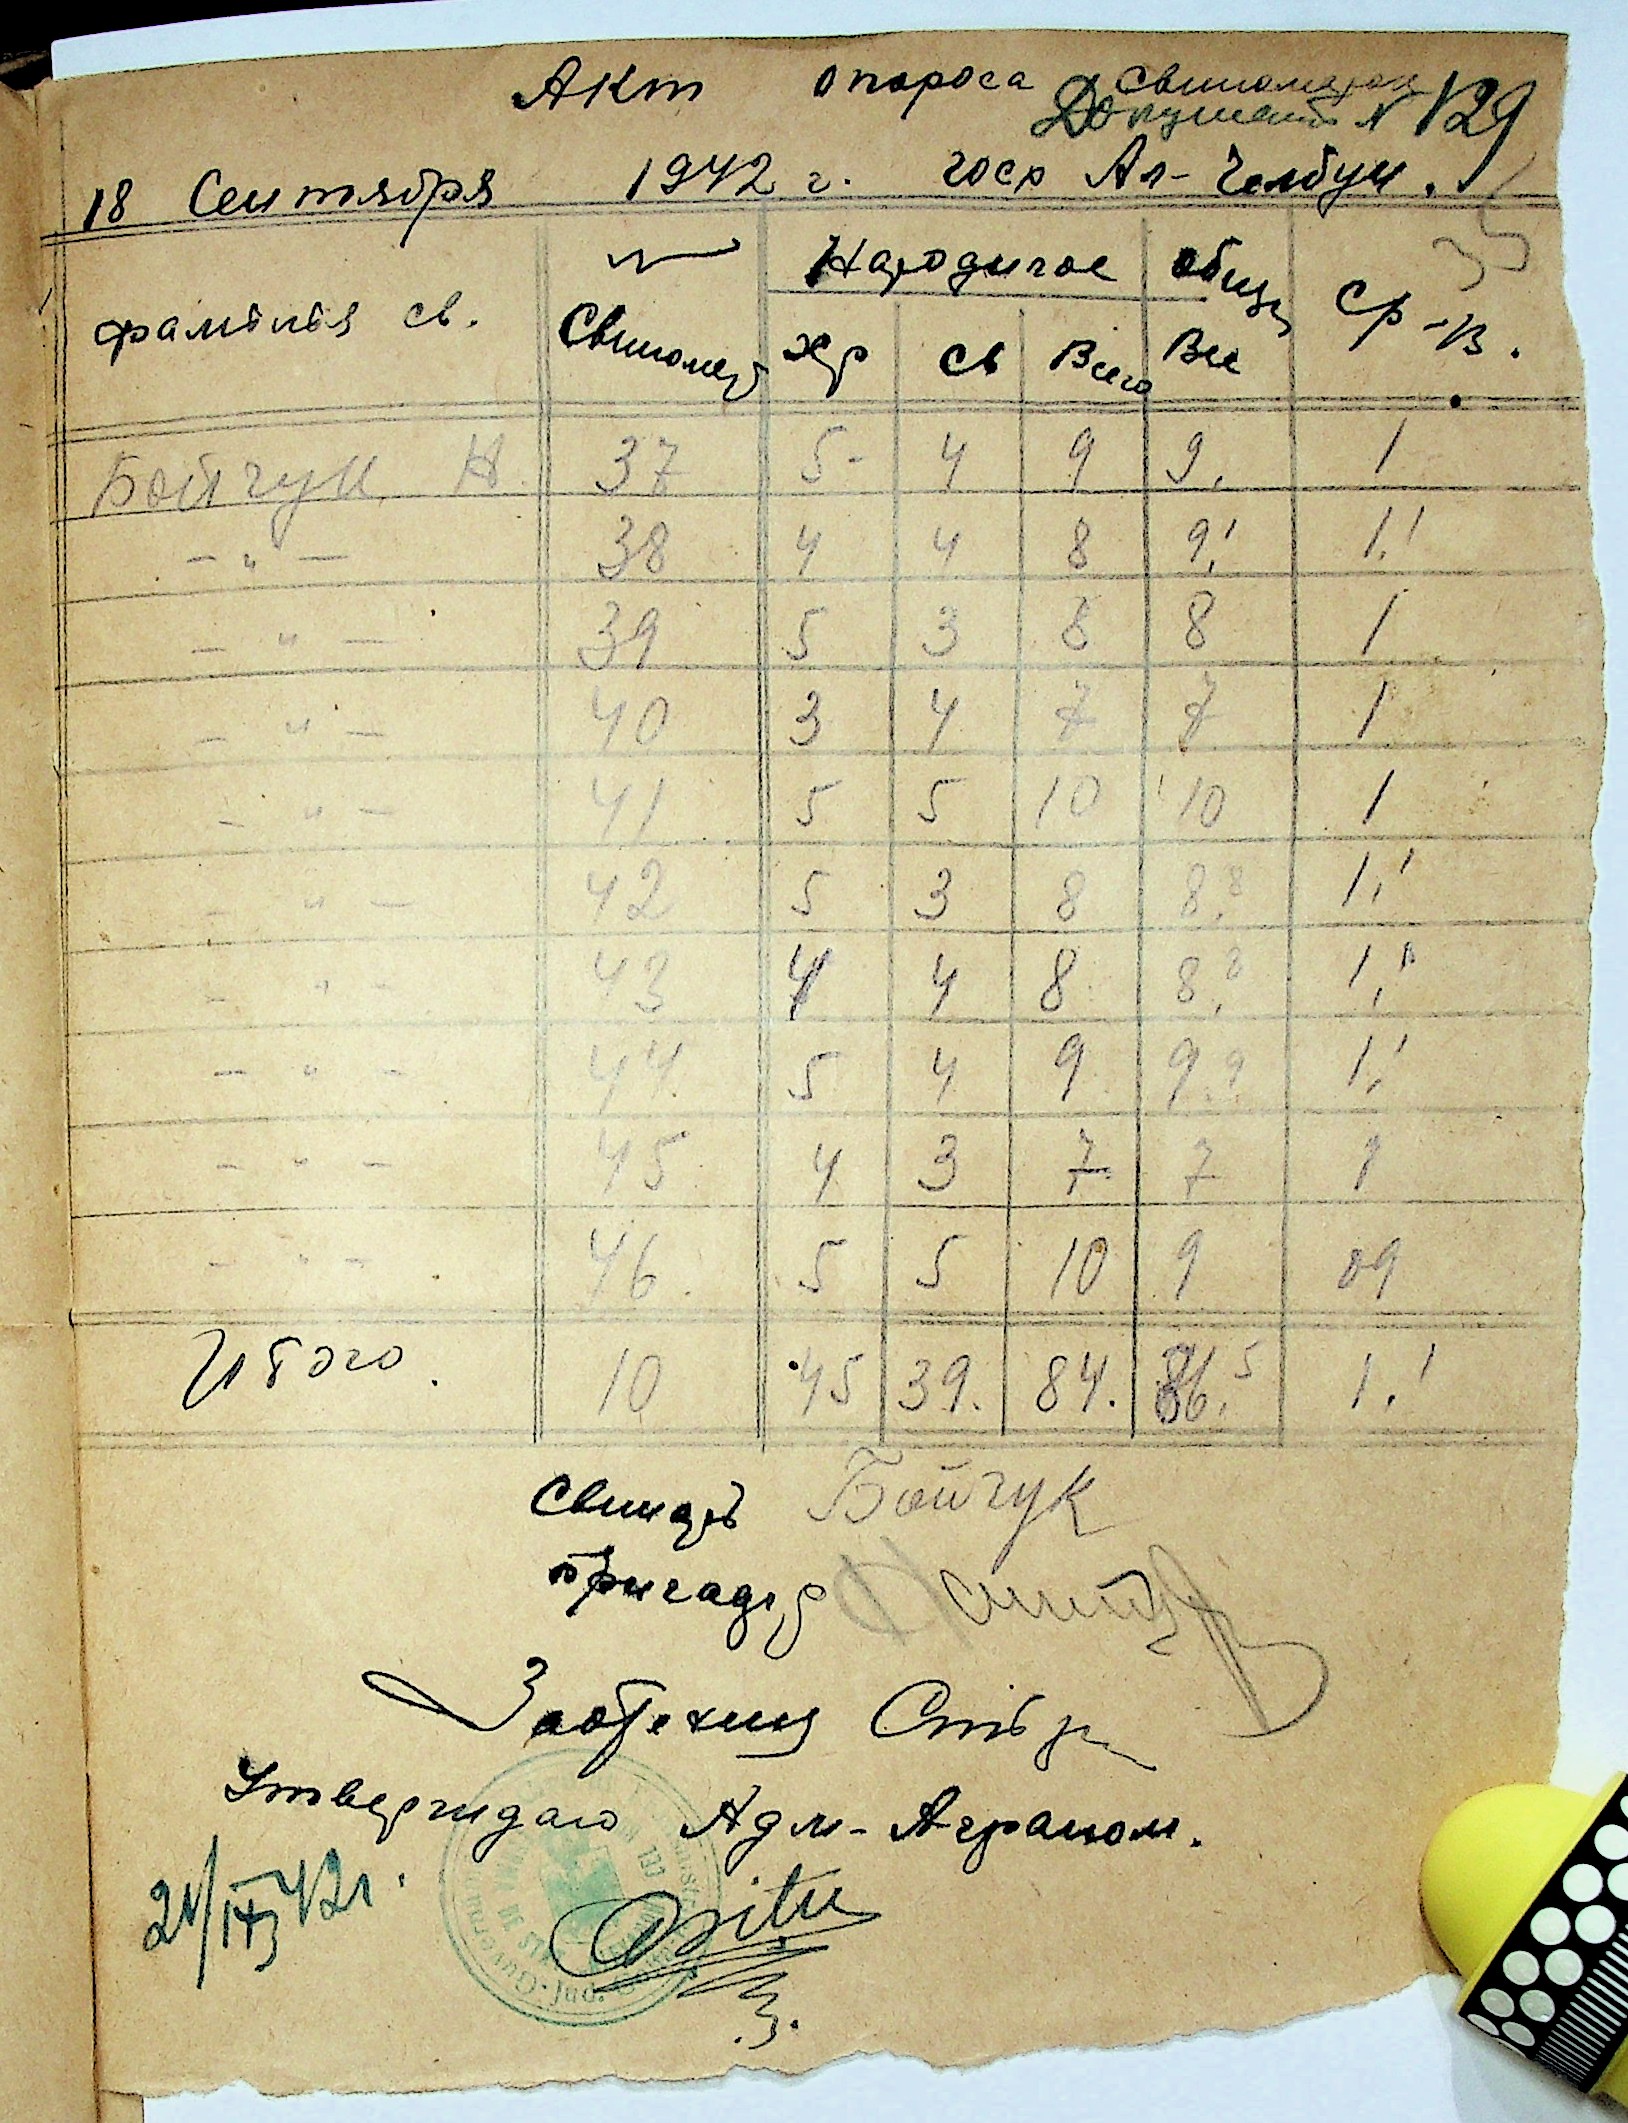 Акт опороса свиноматок
Документ № 129
18 Сентября 1942 г. госх Ал-
фамилия св. № Свиномат Народилось общи Ср-в.
хр св Всего Вес
Бойчук Н 37 5- 4 9 9, 1
-"- 38 4 4 8 9,1 1,1
-"- 39 5 3 8 8 1
-"- 40 3 4 7 7 1
-"- 41 5 5 10 10 1
-"- 42 5 3 8 8,8 1,1
-"- 43 4 4 8 8,8 1,1
-"- 44 5 4 9 9,9 1,1
-"- 45 4 3 7 7 1
-"- 46 5 5 10 9 09
Итого. 10 45 39. 84. 86,5 1.1
Свинарь Бойчук
бригадир
Утверждаю Адм-Аграном.
42г.